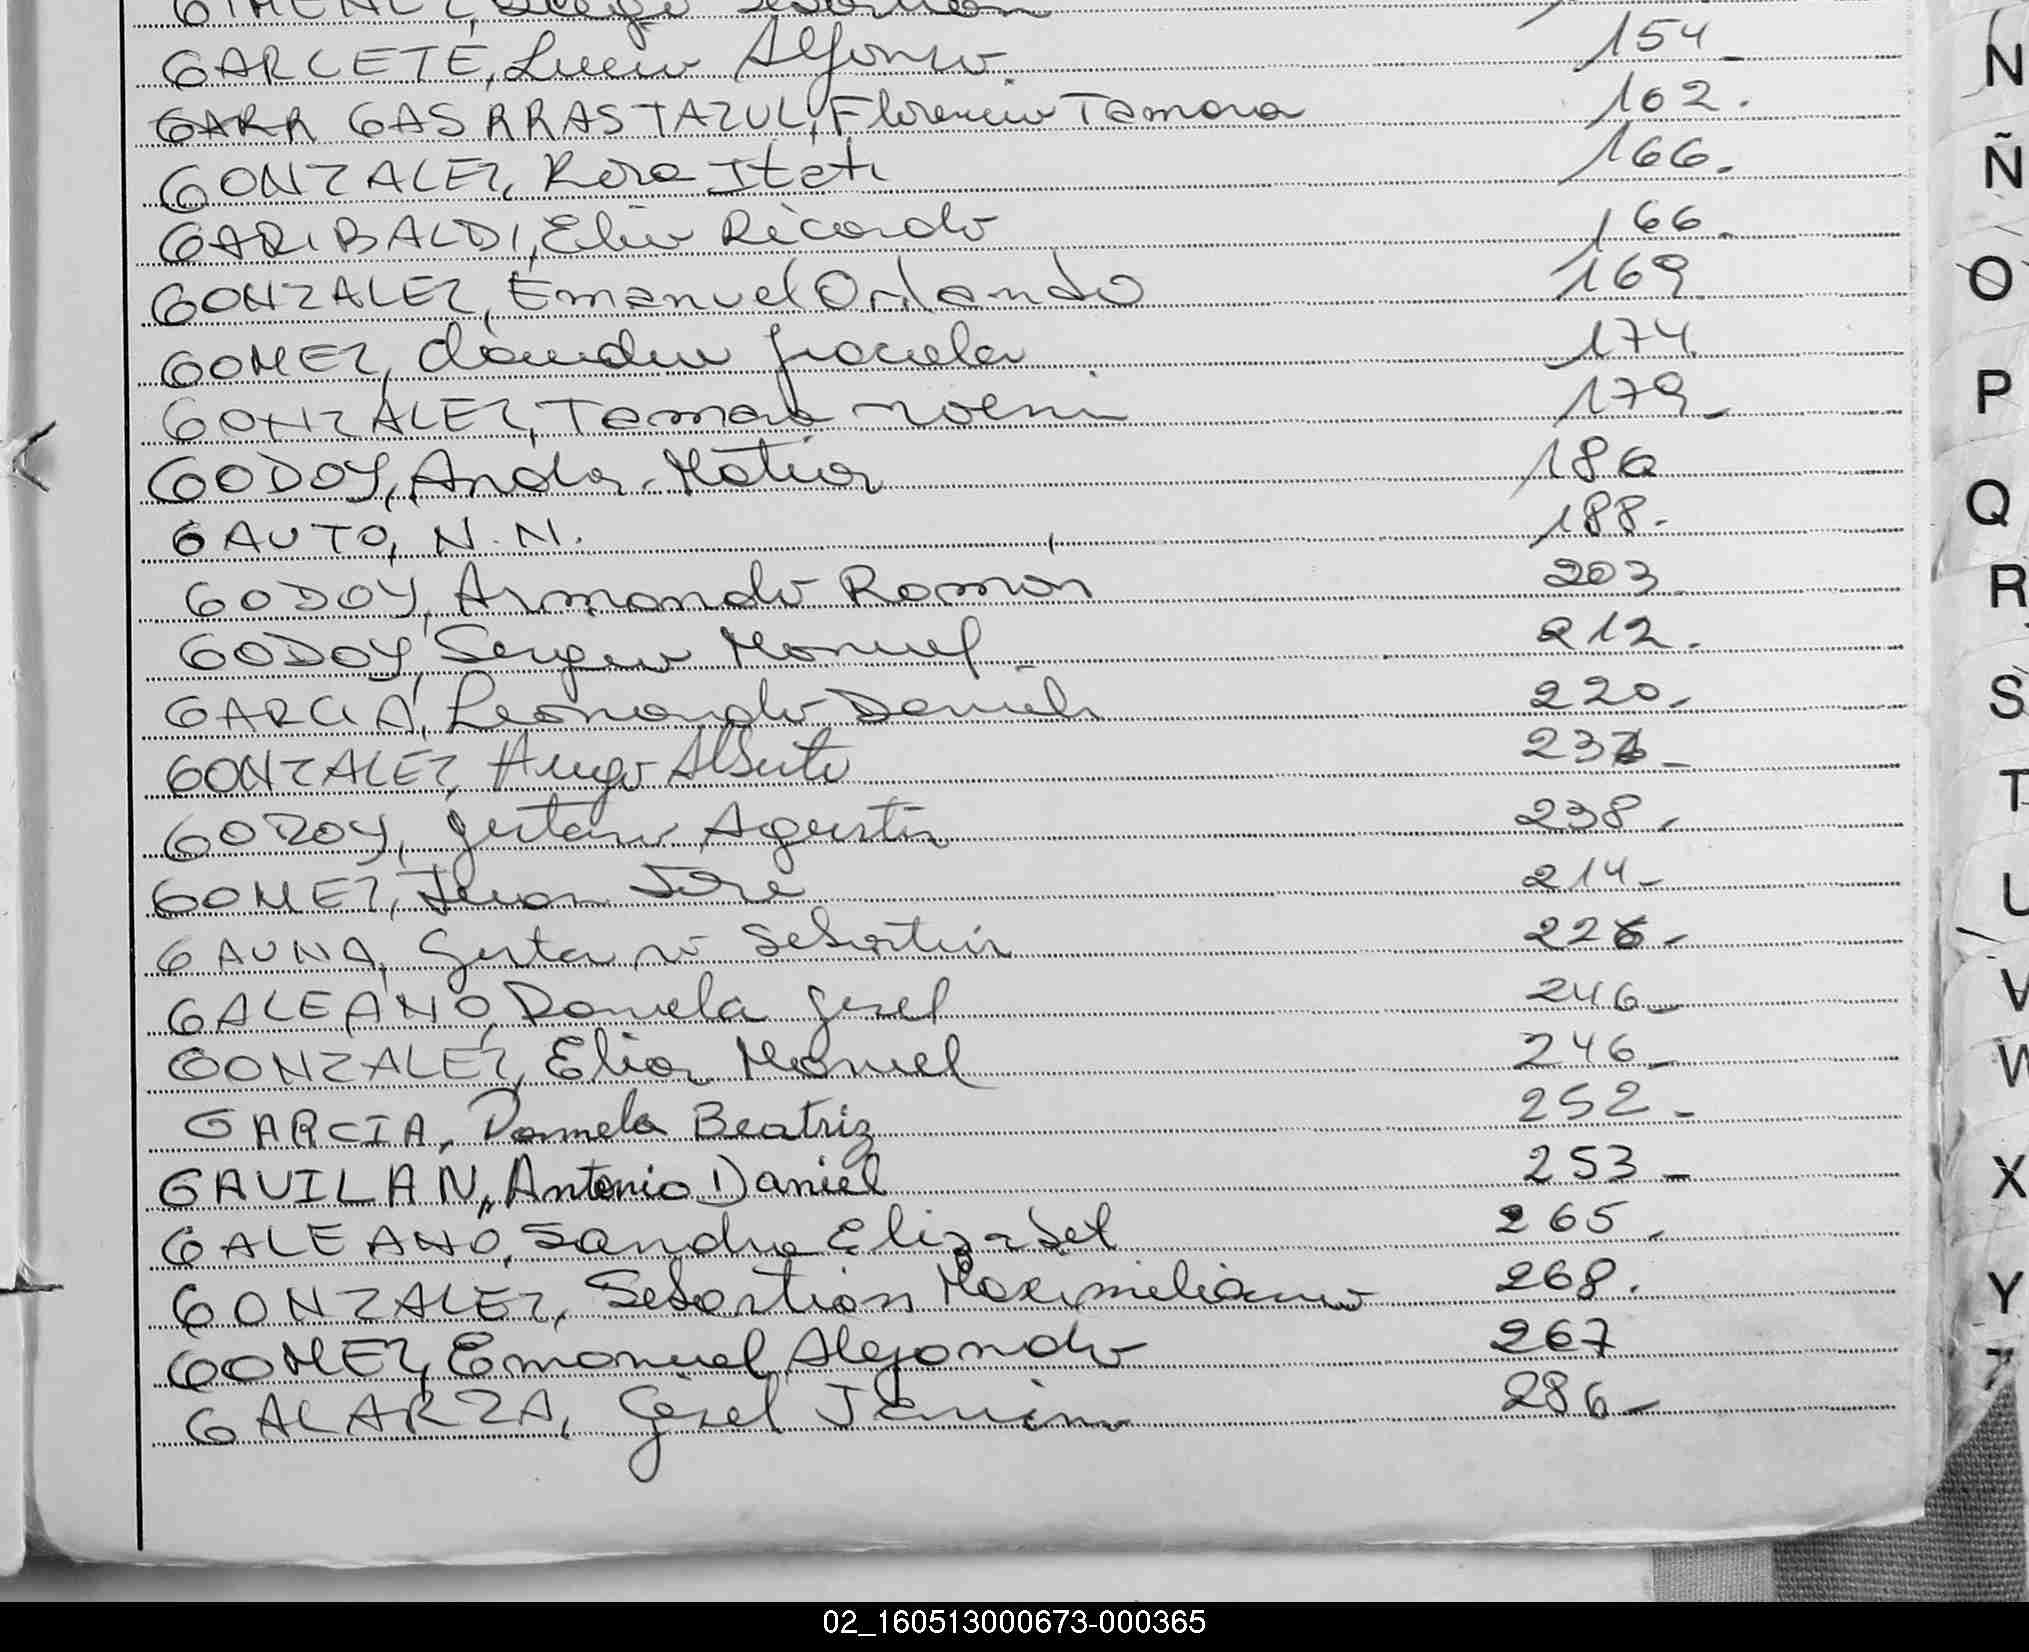 GIMENEZ, Diego Sebastian
GARCETE, Lucio Alfonso 154-
GARR GASRRASTAZUL, Florencia Tamara 162.
GONZALEZ, Rosa Itati 166.
GARIBALDI, Elio Ricardo 166.
GONZALEZ, Emanuel Orlando 169
GOMEZ, Claudia Graciela 174
GONZALEZ, Tamara Noemi 179-
GODOY, Andres Matias 186
GAUTO, N.N. 188.
GODOY, Armando Ramon 203
GODOY, Sergio Manuel 212.
GARCIA, Leonardo Daniel 220-
GONZALEZ, Hugo Alberto 236-
GODOY, Gustavo Agustin 238.
GOMEZ, Juan Jose 214-
GAUNA, Gustavo Sebastian 226-
GALEANO, Daniela Gisel 246-
GONZALEZ, Elias Manuel 246-
GARCIA, Daniela Beatriz 252-
GAVILAN, Antonio Daniel 253-
GALEANO, Sandra Elizabet 265.
GONZALEZ, Sebastian Maximiliano 268.
GOMEZ, Emanuel Alejandro 267
GALARZA, Gisel 286-
N
Ñ
O
P
Q
R
S
T
U
V
W
X
Y
Z
02_160513000673-000365